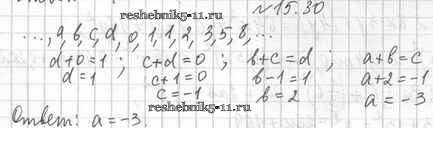 № 15.30
..., a, b, c, d, 0, 1, 1, 2, 3, 5, 8, ...
d+0=1 ; c+d=0 ; b+c=d ; a+b=c
d=1 c+1=0 b-1=1 a+2=-1
c=-1 b=2 a=-3
Ответ: a=-3.
reshebnik5-11.ru
www.reshebnik5-11.ru